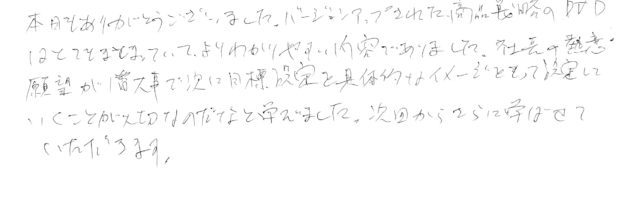 本日もありがとうございました。バージョンアップされた商品戦略のDVD
はとてもまとまっていて、よりわかりやすい内容でありました。社長の熱意・
願望が1番大事で次に目標設定を具体的なイメージをもって設定して
いくことが大切なのだなと学びました。次回からさらに学ばせて
いただきます。